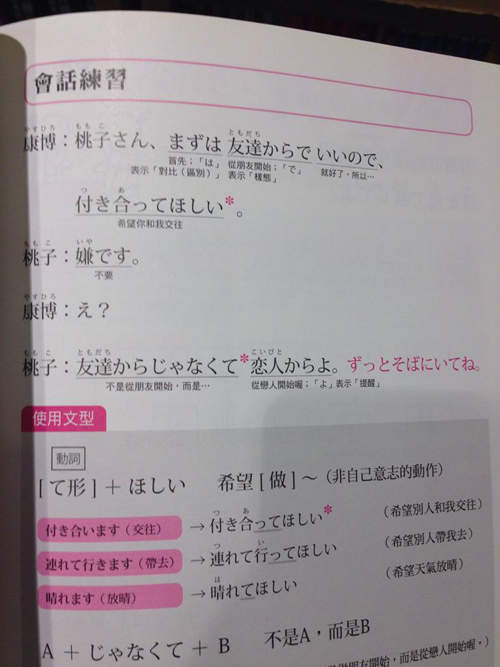 會話練習
やすひろ ももこ ともだち
康博：桃子さん、まずは 友達からで いいので、
首先；「は」 從朋友開始；「で」 就好了，所以…
表示「對比（區別）」 表示「樣態」
つ あ
付き合ってほしい＊。
希望你和我交往
ももこ いや
桃子：嫌です。
不要
やすひろ
康博：え？
ももこ ともだち こいびと
桃子：友達からじゃなくて＊恋人からよ。ずっとそばにいてね。
不是從朋友開始，而是… 從戀人開始喔；「よ」表示「提醒」
使用文型
動詞
[て形]＋ほしい 希望[做]～（非自己意志的動作）
つ あ
付き合います（交往） →付き合ってほしい＊ （希望別人和我交往）
つ い
連れて行きます（帶去） →連れて行ってほしい （希望別人帶我去）
は
晴れます（放晴） →晴れてほしい （希望天氣放晴）
A＋じゃなくて＋B 不是A，而是B
朋友開始，而是從戀人開始喔。）